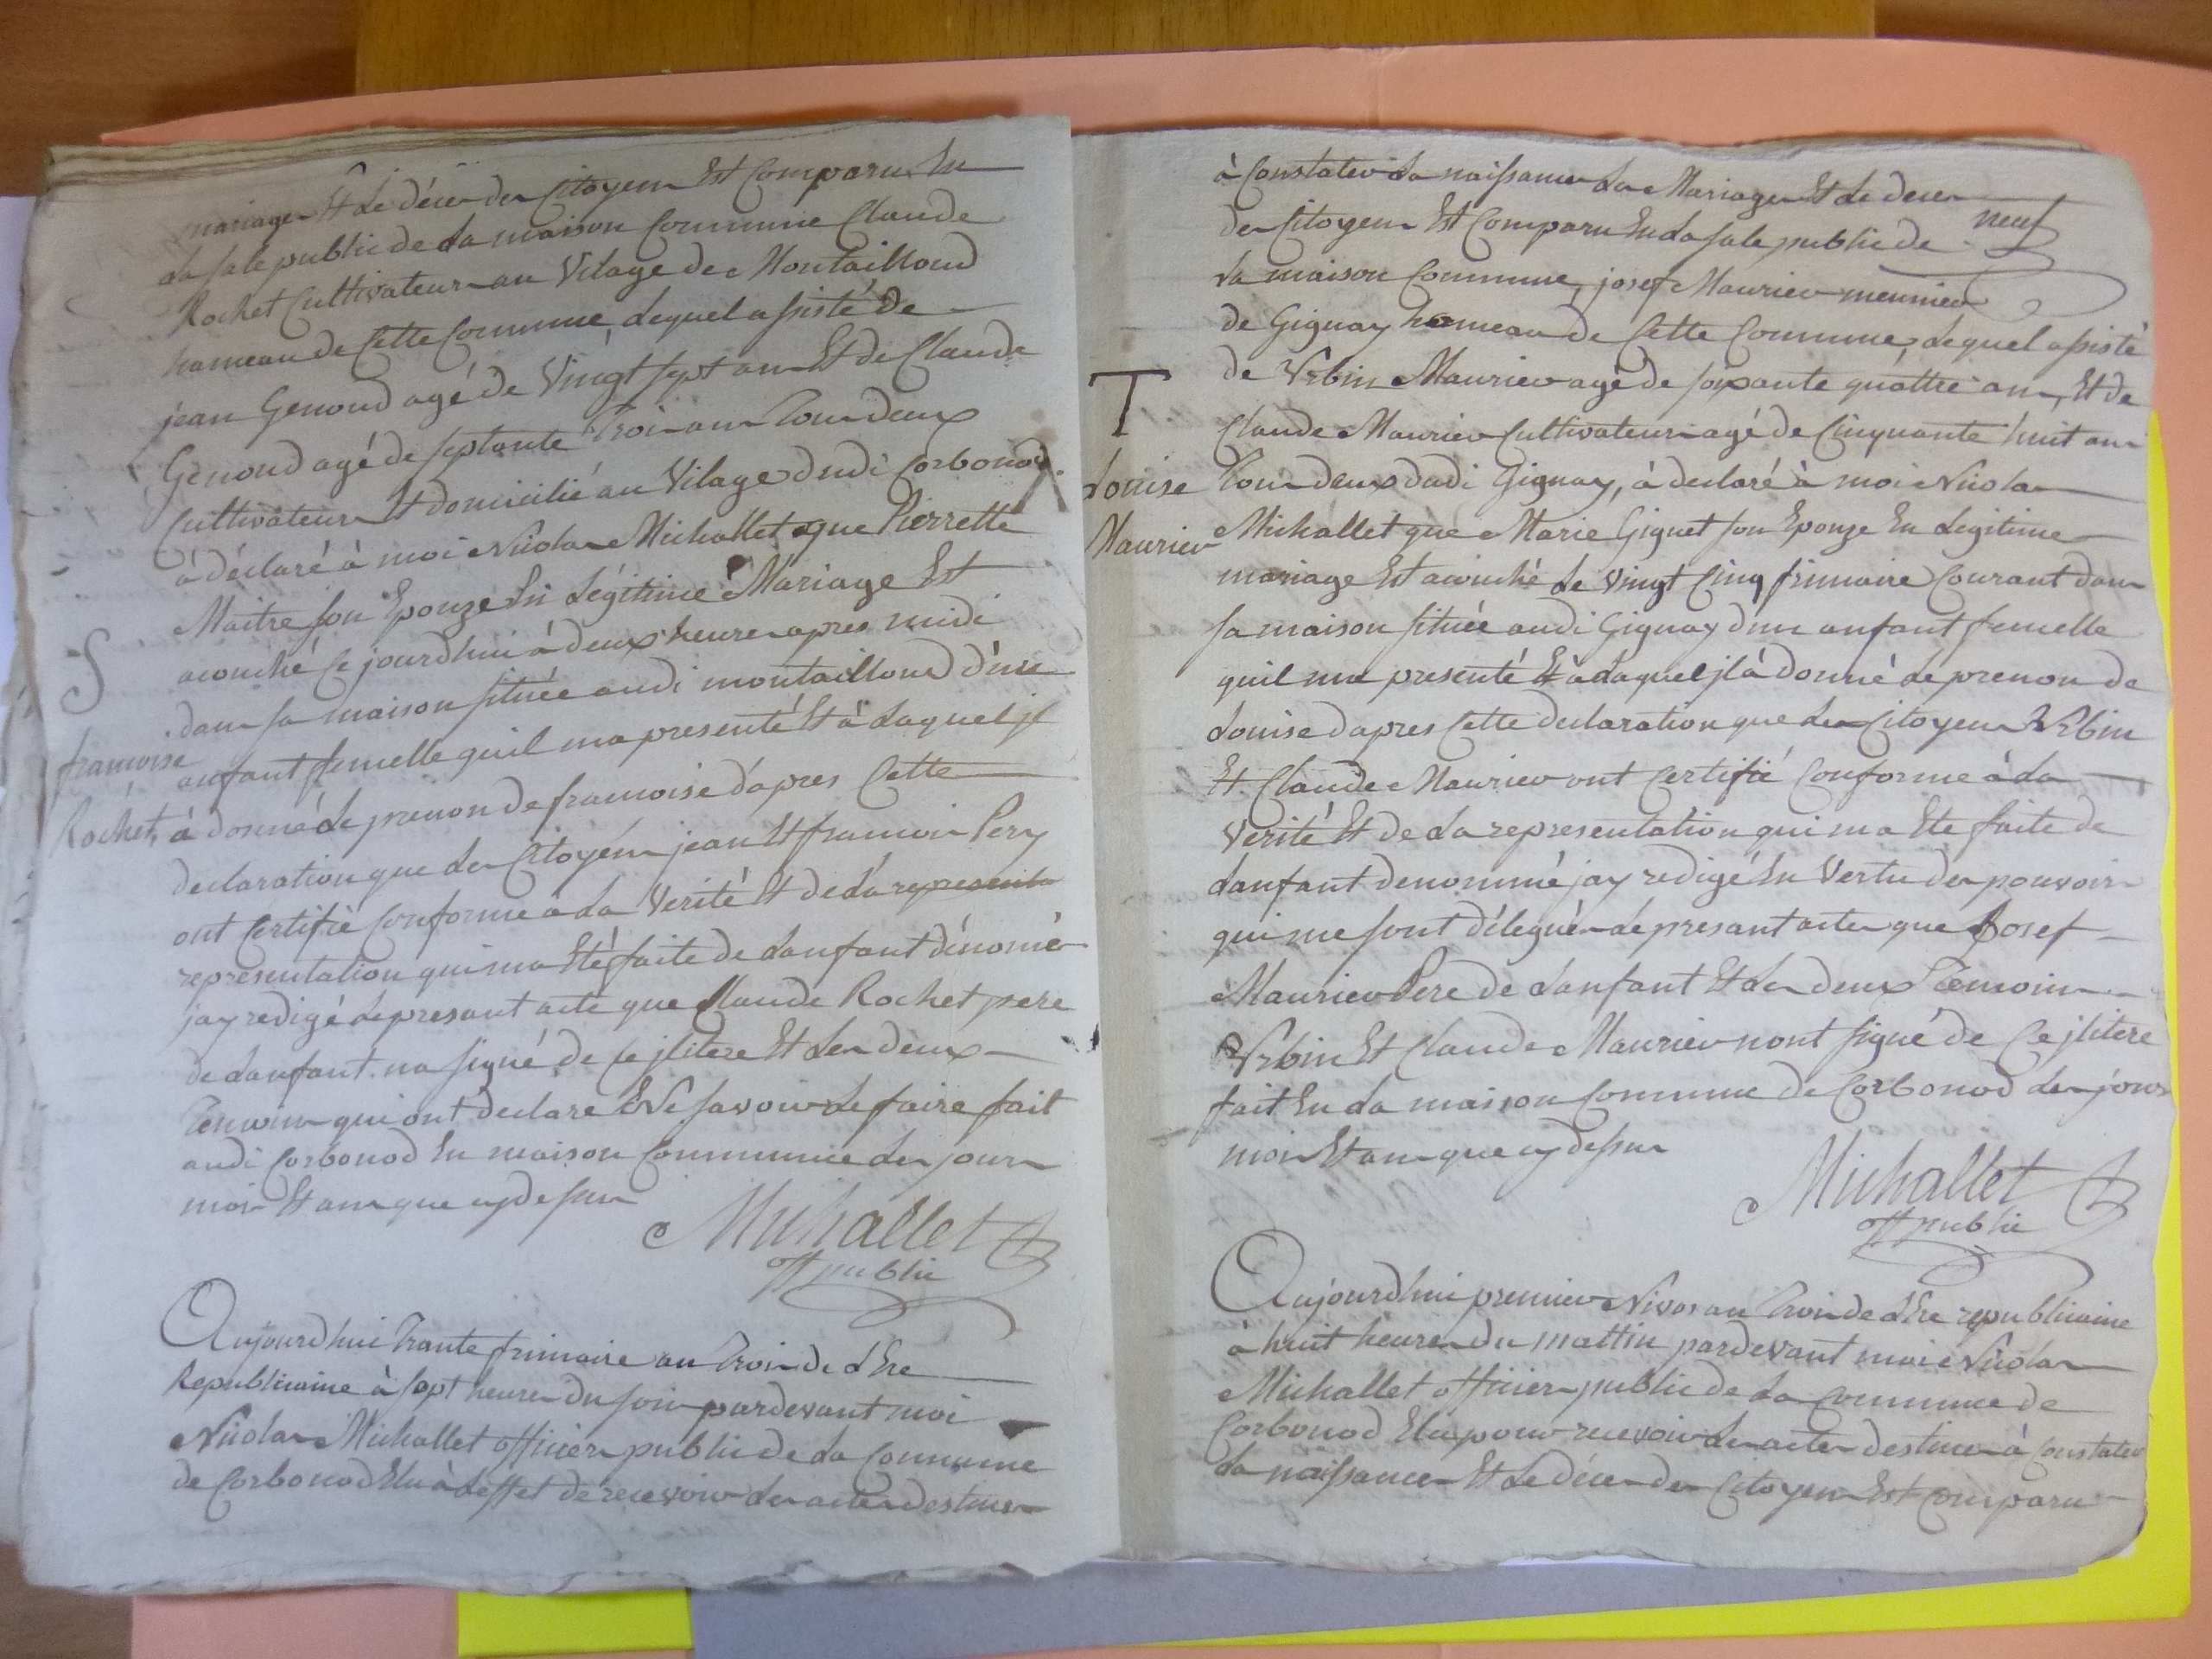 mariage Et Le décer der Citoyen Est Comparu En
La sale public de La maison Commune Claude
Rochet Cultivateur au Vilage de Montailloud
hameau de Cette Commune Lequel assisté de
jean Genoud agé de Vingt sept an Et de Claude
Genoud agé de septante Troi an Tour deux
Cultivateur Et domicilié au Vilage dudi Corbonod
à déclaré à moi Nicolas Michallet que Pierrette
Maitre son Epouze En Légitime Mariage Est
acouché Ce jourdhui à deux heure apres midi
dans sa maison située audi montailloud d'une
anfant femelle quil ma presenté Et à Laquel jl
à donné Le prenon de francoise d'apres Cette
declaration que Les Citoyen jean Et francois Pery
ont Certifié Conforme à La Verité Et de La represente
representation qui ma Eté faite de Lanfant dénomé
jay redigé Le presant acte que Claude Rochet pere
de Lanfant na signé de Ce jlitere Et Les deux
Temoin qui ont declare Ne savoir Le faire fait
audi Corbonod En maison Commune Les jour
moi Et an que cy dessus
Michallet
off public
S
francoise
Rochet
Aujourdhui Trante frimaire an Troi de L'Ere
Republicaine à sept heure du soir pardevant moi
Nicolas Michallet officier public de La Commune
de Corbonod Elu à Leffet de recevoir Les actes destiner
à Constater La naissance Le Mariage Et Le decer
des Citoyen Est Comparu En La sale public de
neuf
La maison Commune, josef Maurier meunier
de Gignay hameau de Cette Commune, Lequel assisté
de Vrbin Maurier agé de soixante quattre an, Et de
Claude Maurier Cultivateur agé de Cinquante huit an
Tour deux dudi Gignay, à declaré à moi Nicolas
Michallet que Marie Giguet son Epouze En Legitime
mariage Est acouché Le Vingt Cinq frimaire Courant dans
sa maison située audi Gignay d'un anfant femelle
quil ma presenté Et à Laquel jl à donné Le prenon de
Louise dapres Cette declaration que Les Citoyen Vrbin
Et Claude Maurier ont Certifié Conforme à La
Verité Et de La representation qui ma Ete faite de
Lanfant denommé jay redigé En Vertu des pouvoir
qui me sont délegué Le presant acte que Josef
Maurier Pere de Lanfant Et Les deux Temoin
Vrbin Et Claude Maurier nont signé de Ce jlitere
fait En La maison Commune de Corbonod Les jour
moi Et an que cy dessus
Michallet
off public
T
Louise
Maurier
Aujourdhui premier Nivos an Troi de L'Ere republicaine
à huit heure du mattin pardevant moi Nicolas
Michallet officier public de La Commune de
Corbonod Elu pour recevoir Les actes destiner à Constater
La naissance Et Le décer des Citoyen Est Comparu